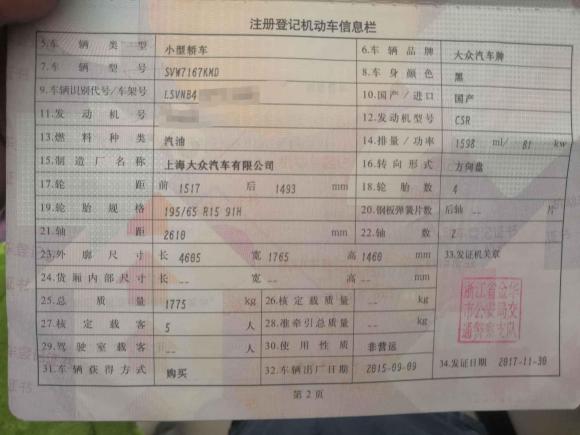 注册登记机动车信息栏
5.车辆类型 小型轿车 6.车辆品牌 大众汽车牌
7.车辆型号 SVW7167KMD 8.车身颜色 黑
9.车辆识别代号/车架号 LSVNB4 10.国产/进口 国产
11.发动机号 12.发动机型号 CSR
13.燃料种类 汽油 14.排量/功率 1598 ml/ 81 kw
15.制造厂名称 上海大众汽车有限公司 16.转向形式 方向盘
17.轮距 前 1517 后 1493 mm 18.轮胎数 4
19.轮胎规格 195/65 R15 91H 20.钢板弹簧片数 后轴 -- 片
21.轴距 2610 mm 22.轴数 2
23.外廓尺寸 长 4605 宽 1765 高 1460 mm 33.发证机关章
24.货厢内部尺寸 长 -- 宽 -- 高 -- mm
25.总质量 1775 kg 26.核定载质量 -- kg
27.核定载客 5 人 28.准牵引总质量 -- kg
29.驾驶室载客 -- 人 30.使用性质 非营运
31.车辆获得方式 购买 32.车辆出厂日期 2015-09-09 34.发证日期 2017-11-30
浙江省金华
市公安局交
通警察支队
第2页